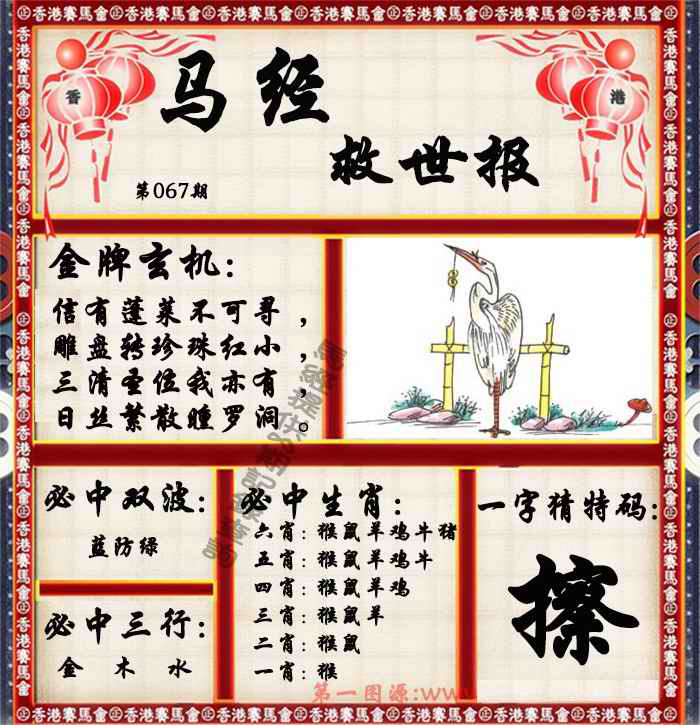 香港賽馬會
香 港
马经
救世报
第067期
金牌玄机：
信有蓬莱不可寻，
雕盘转珍珠红小，
三清圣位我亦有，
日丝繁散瞳罗洞。
必中双波：
蓝防绿
必中三行：
金 木 水
必中生肖：
六肖：猴鼠羊鸡牛猪
五肖：猴鼠羊鸡牛
四肖：猴鼠羊鸡
三肖：猴鼠羊
二肖：猴鼠
一肖：猴
一字猜特码：
擦
第一图源:ww